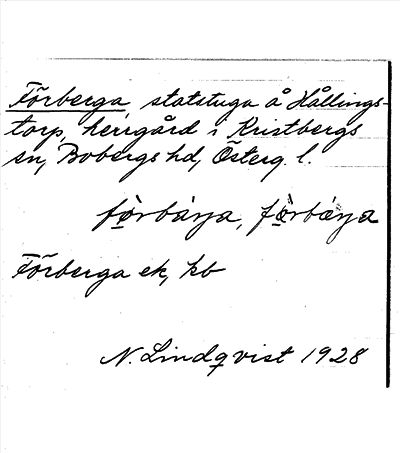 Förberga, statstuga å Hållings-
torp, herrgård i Kristbergs
sn, Bobergs hd, Österg. l.
Förberga ek, kb
N. Lindqvist 1928